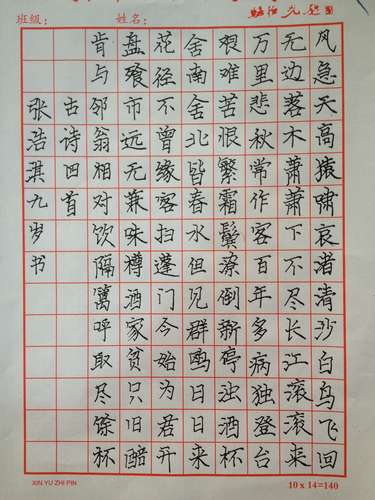 班级：
姓名：
风急天高猿啸哀渚清沙白鸟飞回
无边落木萧萧下不尽长江滚滚来
万里悲秋常作客百年多病独登台
艰难苦恨繁霜鬓潦倒新停浊酒杯
舍南舍北皆春水但见群鸥日日来
花径不曾缘客扫蓬门今始为君开
盘飧市远无兼味樽酒家贫只旧醅
肯与邻翁相对饮隔篱呼取尽馀杯
古诗四首
张浩淇九岁书
XIN YU ZHI PIN
10 x 14=140